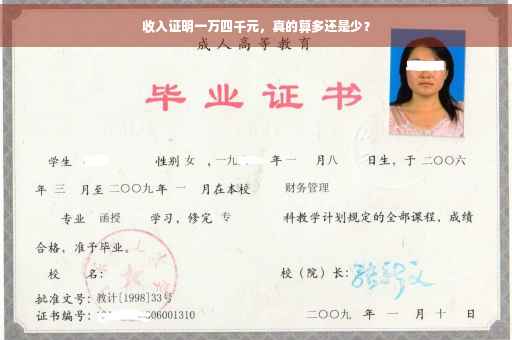 收入证明一万四千元，真的算多还是少？
成人高等教育
毕业证书
学生 性别 女 ，一九 年 一 月 八 日生，于 二〇〇六
年 三 月至 二〇〇九 年 一 月在本校 财务管理
专业 函授 学习，修完 专 科教学计划规定的全部课程，成绩
合格，准予毕业。
校 名： 校（院）长：
批准文号：教计[1998]33号
证书编号： 06001310 二〇〇九 年 一 月 十 日